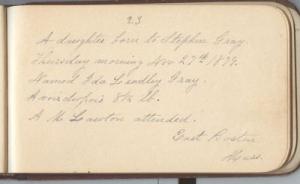 23
A daughter born to Stephen Gray.
Thursday morning Nov 27th 1879.
Named Ida Lindley Gray.
Avoirdupois 8¾ lb.
A M Lawton attended.
East Boston
Mass.